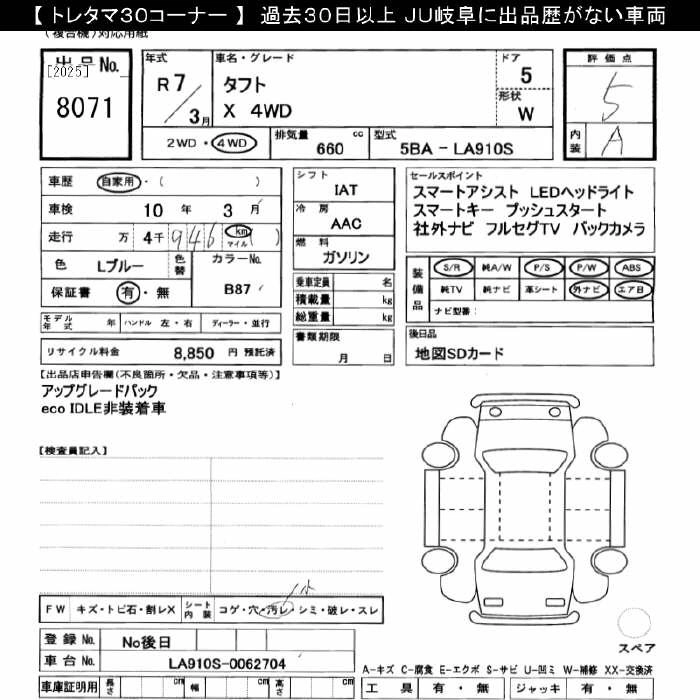 【 トレタマ30コーナー 】 過去30日以上 JU岐阜に出品歴がない車両
(複合機)対応用紙
出品No.
[2025]
8071
年式
R 7/3月
車名・グレード
タフト
X 4WD
ドア
5
形状
W
2WD・4WD
排気量 660 cc
型式 5BA - LA910S
評価点
5
内装 A
車歴 自家用・( )
車検 10 年 3 月
走行 万 4千 946 km マイル ( )
色 Lブルー 色替
カラーNo. B87
保証書 有・無
シフト
IAT
冷房
AAC
燃料
ガソリン
乗車定員 名
積載量 kg
総重量 kg
セールスポイント
スマートアシスト LEDヘッドライト
スマートキー プッシュスタート
社外ナビ フルセグTV バックカメラ
装備品
S/R 純A/W P/S P/W ABS
純TV 純ナビ 革シート 外ナビ エアB
ナビ型番:
モデル年式 年 ハンドル 左・右 ディーラー・並行
書類期限
月 日
後日品
地図SDカード
リサイクル料金 8,850 円 預託済
【出品店申告欄(不良箇所・欠品・注意事項等)】
アップグレードパック
eco IDLE非装着車
【検査員記入】
FW キズ・トビ石・割レX シート内装 コゲ・穴・汚レ・シミ・破レ・スレ
小
登録No. No後日
車台No. LA910S-0062704
車庫証明用 長さ cm 幅 cm 高さ cm
スペア
A-キズ C-腐食 E-エクボ S-サビ U-凹ミ W-補修 XX-交換済
工具 有・無 ジャッキ 有・無